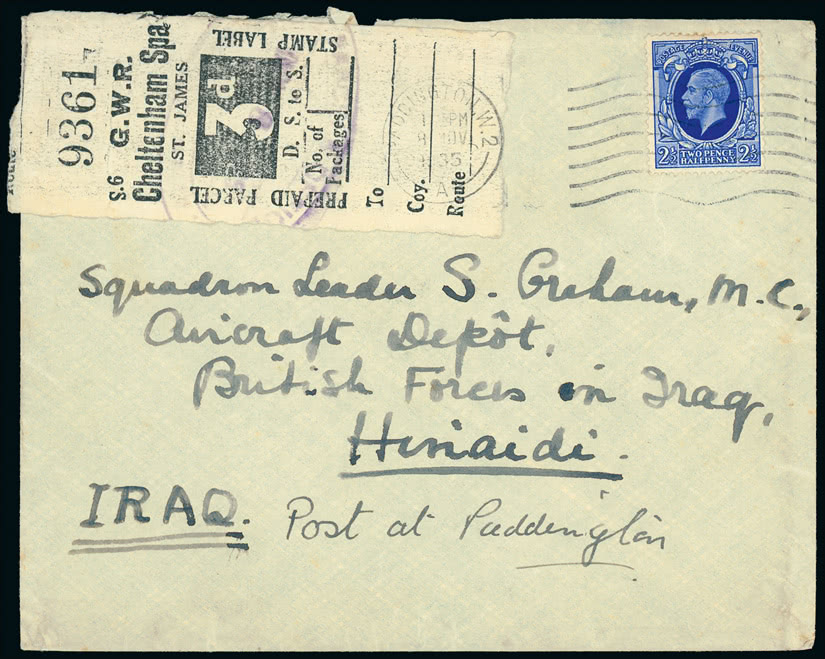 9361
S.6 G.W.R.
Cheltenham Spa
ST. JAMES
PREPAID PARCEL
3d
STAMP LABEL
D. S. to S.
No. of
Packages
To
Coy.
Route
PADDINGTON. W.2
PM
NOV
35
A
POSTAGE REVENUE
2½ TWO PENCE HALFPENNY 2½
Squadron Leader S. Graham, M.C.,
Aircraft Depôt,
British Forces in Iraq,
Hinaidi.
IRAQ. Post at Paddington